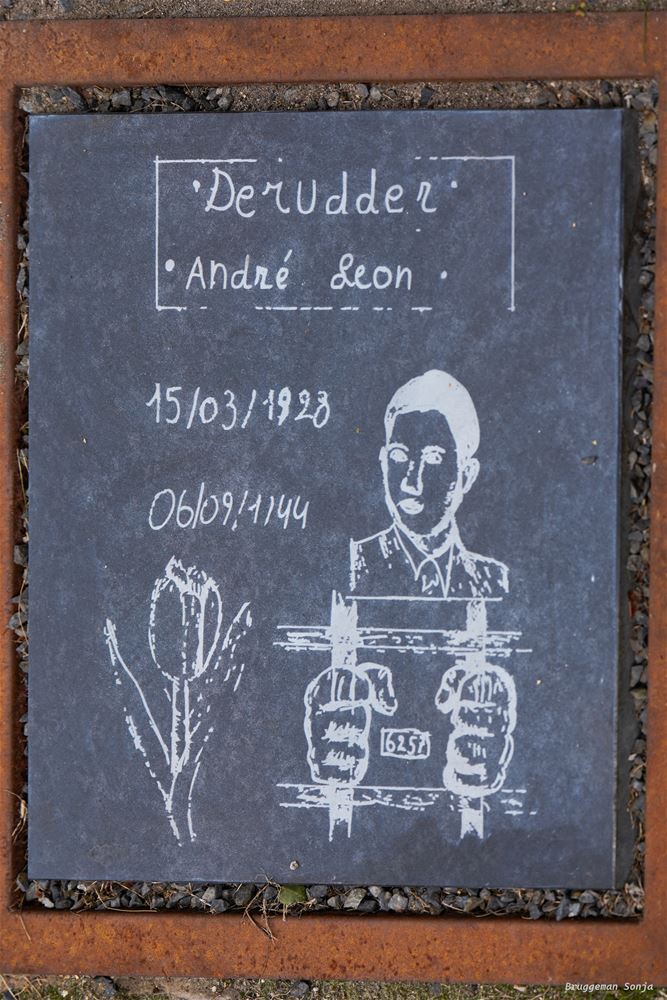 Derudder
André Leon
15/03/1923
06/09/1944
6257
Bruggeman Sonja